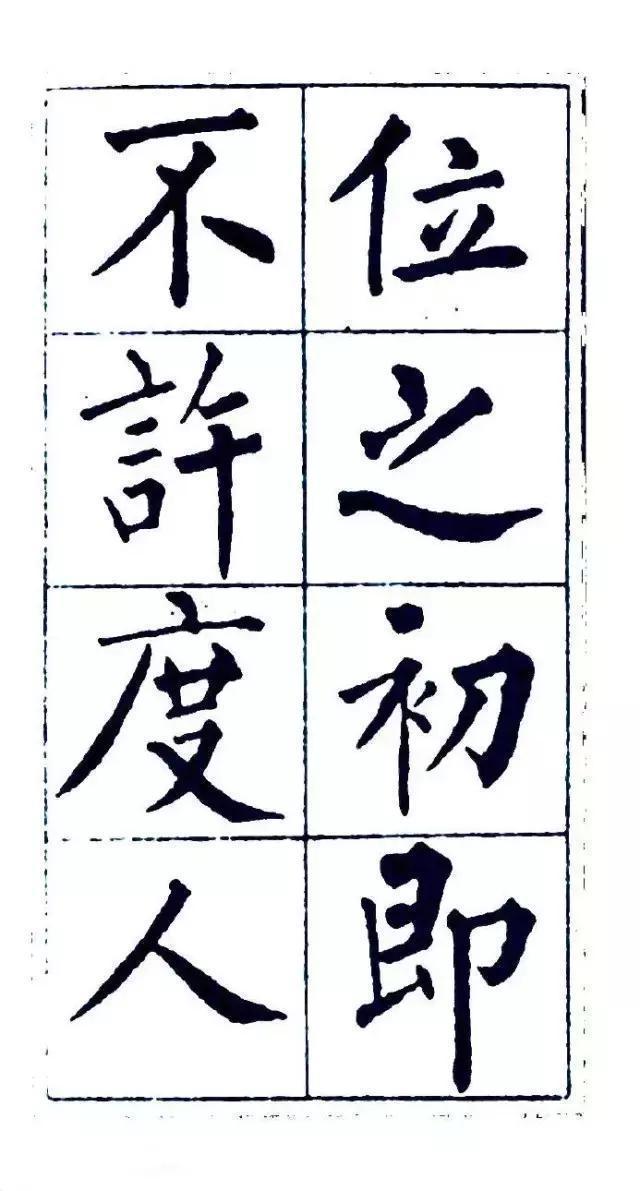 位之初即
不許度人